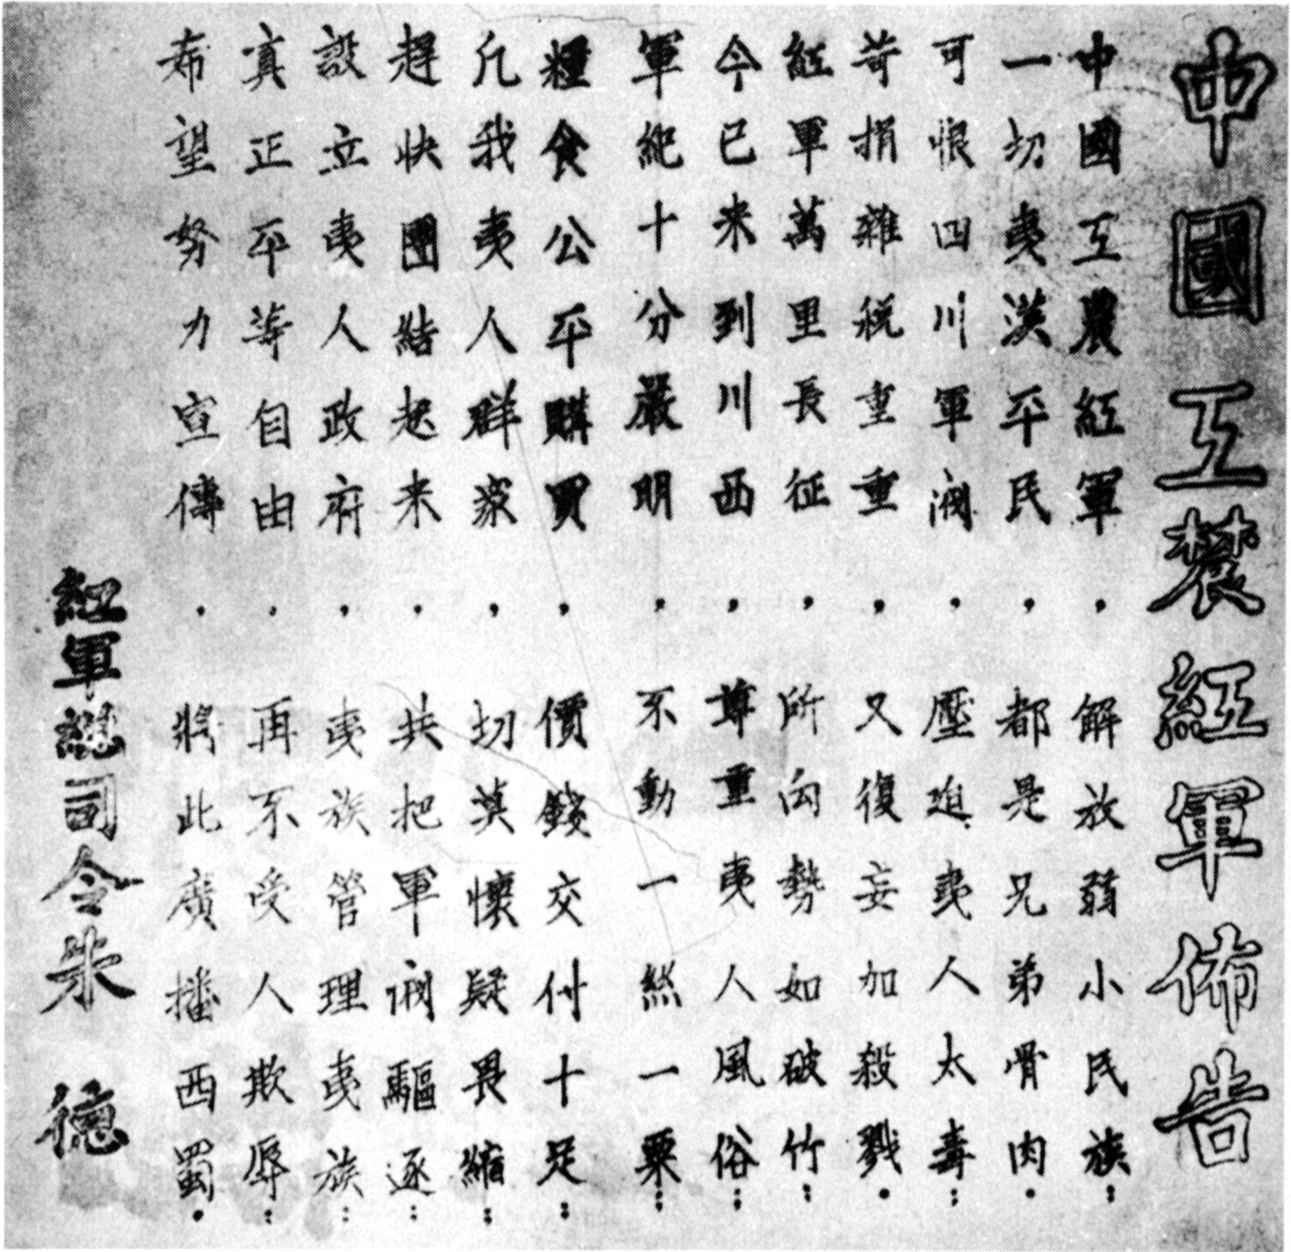 中國工農紅軍佈告
中國工農紅軍，解放弱小民族：
一切夷漢平民，都是兄弟骨肉．
可恨四川軍閥，壓迫夷人太毒：
苛捐雜稅重重，又復妄加殺戮．
紅軍萬里長征，所向勢如破竹：
今已來到川西，尊重夷人風俗：
軍紀十分嚴明，不動一絲一粟：
糧食公平購買，價錢交付十足：
凡我夷人群衆，切莫懷疑畏縮：
趕快團結起來，共把軍閥驅逐：
設立夷人政府，夷族管理夷族：
真正平等自由，再不受人欺辱：
希望努力宣傳，將此廣播西蜀．
紅軍總司令朱德